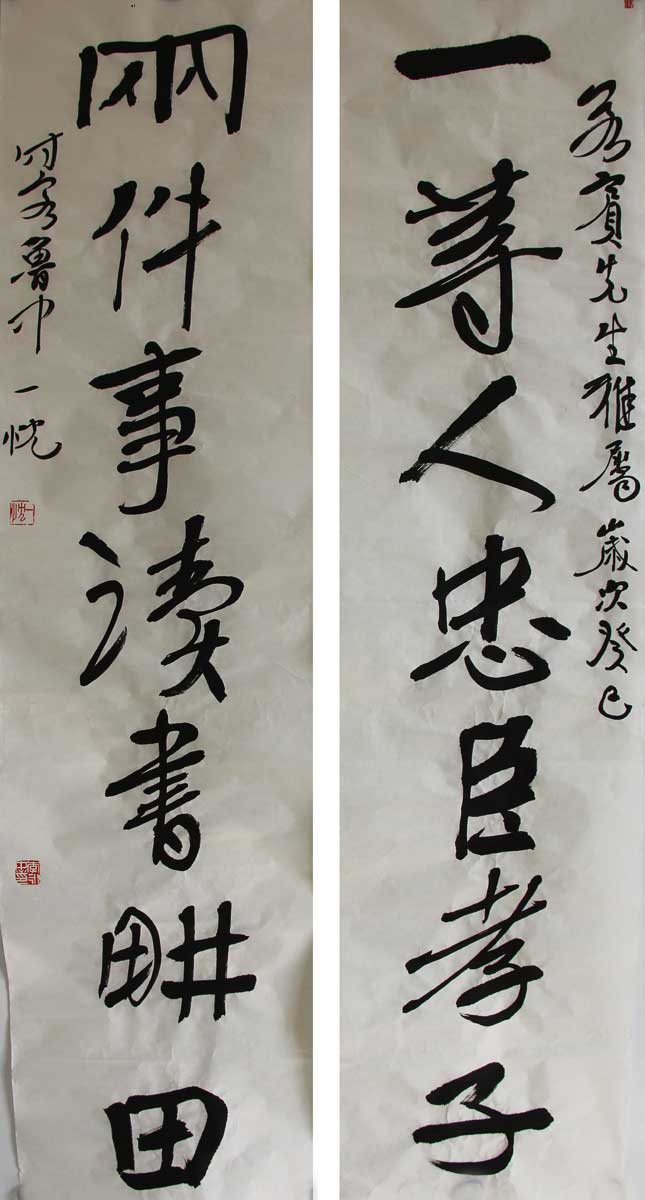 若賓先生雅屬 歲次癸巳
一等人忠臣孝子
兩件事讀書畊田
时客魯中 一忱